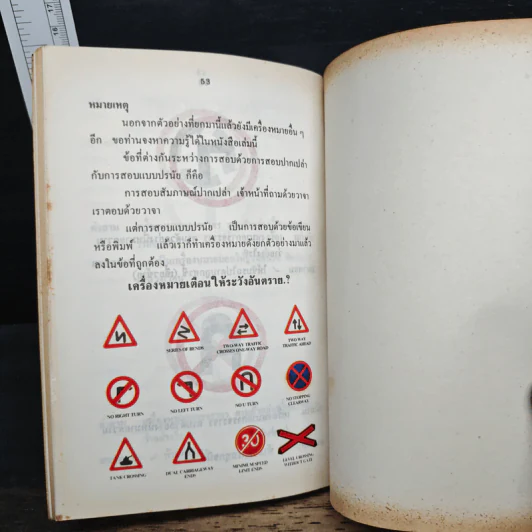 53
หมายเหตุ
นอกจากตัวอย่างที่ยกมานี้แล้วยังมีเครื่องหมายอื่น ๆ
อีก ขอท่านจงหาความรู้ได้ในหนังสือเล่มนี้
ข้อที่ต่างกันระหว่างการสอบด้วยการสอบปากเปล่า
กับการสอบแบบปรนัย ก็คือ
การสอบสัมภาษณ์ปากเปล่า เจ้าหน้าที่ถามด้วยวาจา
เราตอบด้วยวาจา
แต่การสอบแบบปรนัย เป็นการสอบด้วยข้อเขียน
หรือพิมพ์ แล้วเราก็ทำเครื่องหมายดังยกตัวอย่างมาแล้ว
ลงในข้อที่ถูกต้อง
เครื่องหมายเตือนให้ระวังอันตราย.?
SERIES OF BENDS
TWO-WAY TRAFFIC
CROSSES ONE-WAY ROAD
TWO-WAY
TRAFFIC AHEAD
NO RIGHT TURN
NO LEFT TURN
NO U TURN
NO STOPPING
CLEARWAY
TANK CROSSING
DUAL CARRIAGEWAY
ENDS
30
MINIMUM SPEED
LIMIT ENDS
LEVEL CROSSING
WITHOUT GATE